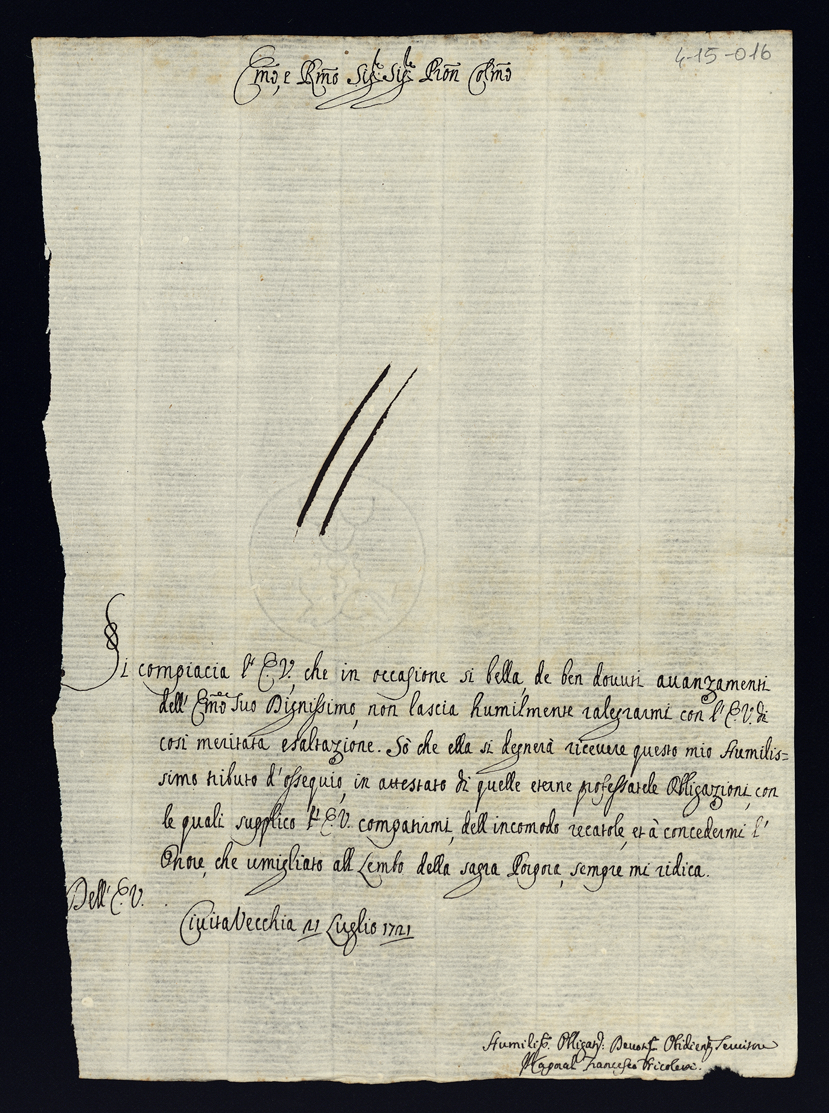 4-15-016
Emo, e Rmo Sigr Sigr Pron Colmo
Si compiacia l'E.V. che in occasione si bella, de ben douuti auanzamenti
dell' Emo Suo Dignissimo, non lascia humilmente ralegrarmi con l'E.V. di
così meritata esaltazione. Sò che ella si degnerà riceuere questo mio Humilis=
simo tributo d'ossequio, in attestato di quelle eterne professatele Obligazioni, con
le quali supplico l'E.V. compatirmi, dell'incomodo recatole, et à concedermi l'
Onore, che umigliato all Lembo della sagra Porpora, sempre mi ridica.
Dell' E.V.
CiuitaVecchia 21 Luglio 1721
Humiliss. Obligat: Deuot Obidien Seruitore
Francesco